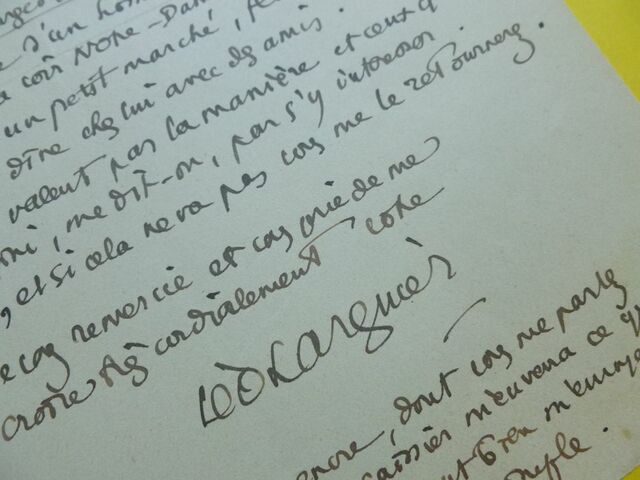 d'un hom
voir Notre-Dam
un petit marché,
dire chez lui avec des amis.
valent par la manière et ceux q
, me dit-on, par s'y intéresser
, et si cela ne va pas vous me le retournerez.
vous remercie et vous prie de me
croire très cordialement votre
Léo Largnier
encore, dont vous me parlez
caissier m'enverra ce q
bien m'envoye